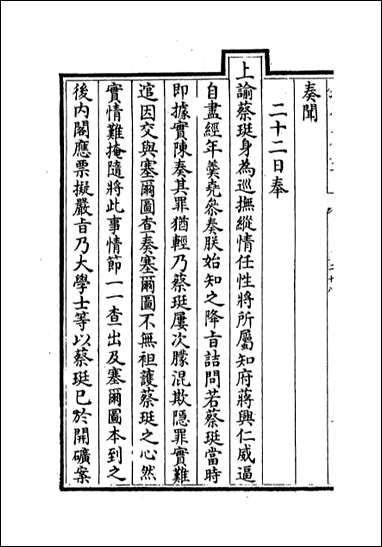 奏聞
二十二日奉
上諭蔡珽身為巡撫縱情任性將所屬知府蔣興仁威逼
自盡經年羹堯參奏朕始知之降旨詰問若蔡珽當時
即據實陳奏其罪猶輕乃蔡珽屢次朦混欺隱罪實難
逭因交與塞爾圖查奏塞爾圖不無袒護蔡珽之心然
實情難掩隨將此事情節一一查出及塞爾圖本到之
後内閣應票擬嚴旨乃大學士等以蔡珽已於開礦案